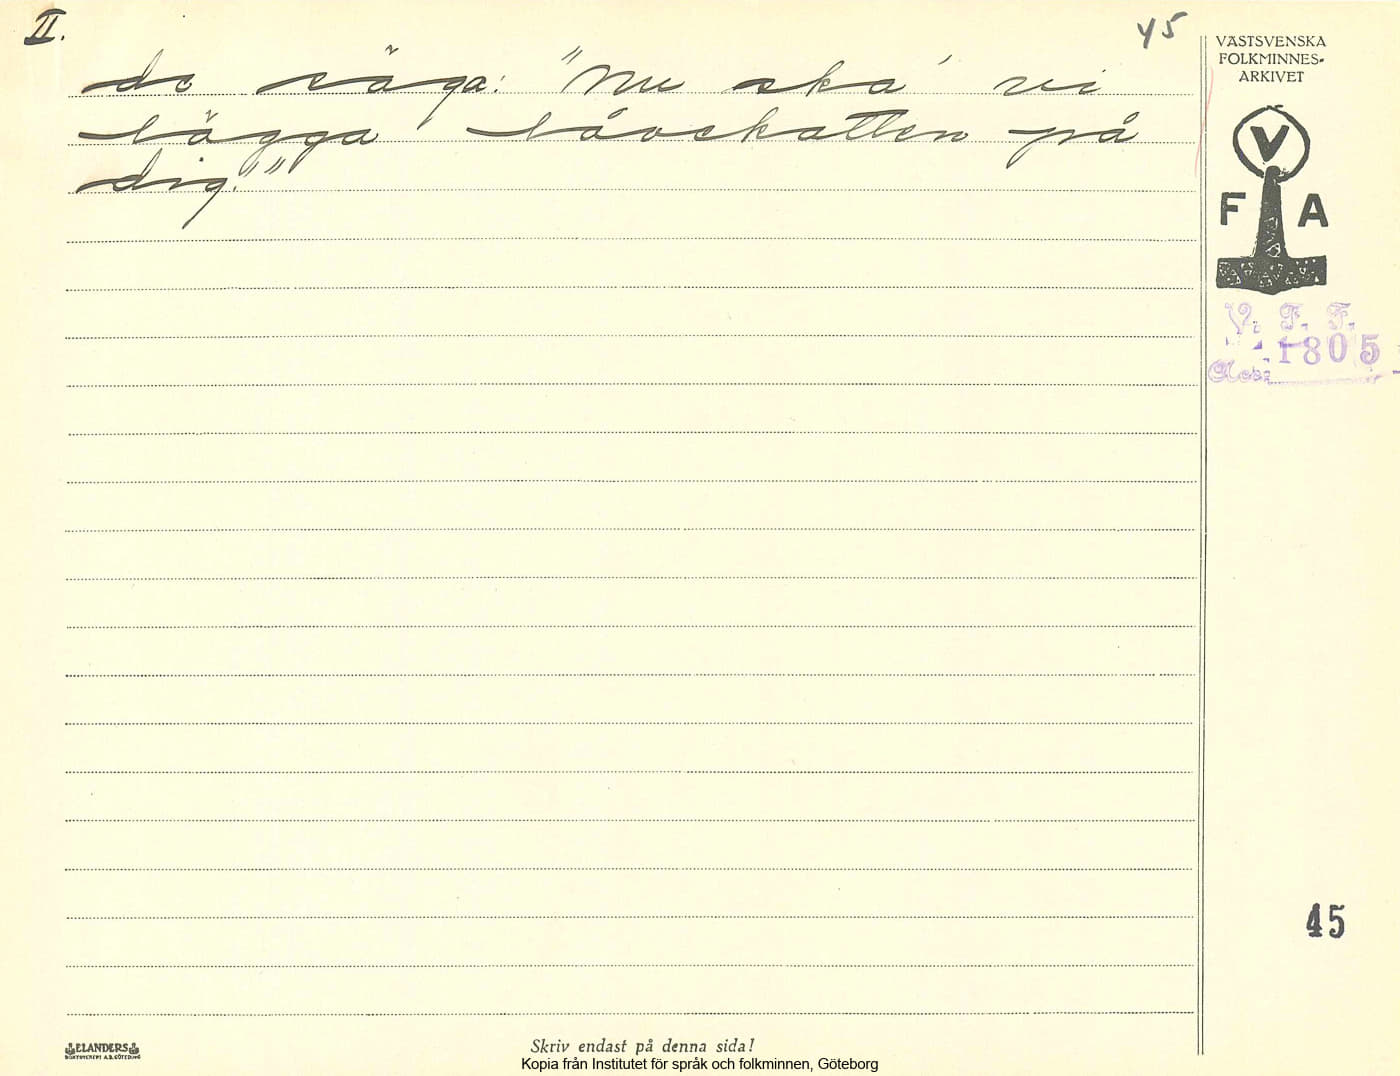 II.
45
do säga: "Nu ska' vi
lägga låvekatten på
dig.""
VÄSTSVENSKA
FOLKMINNES-
ARKIVET
V
F A
V. F. F.
1805
45
ELANDERS
BOKTRYCKERI A.B. GÖTEBORG
Skriv endast på denna sida!
Kopia från Institutet för språk och folkminnen, Göteborg